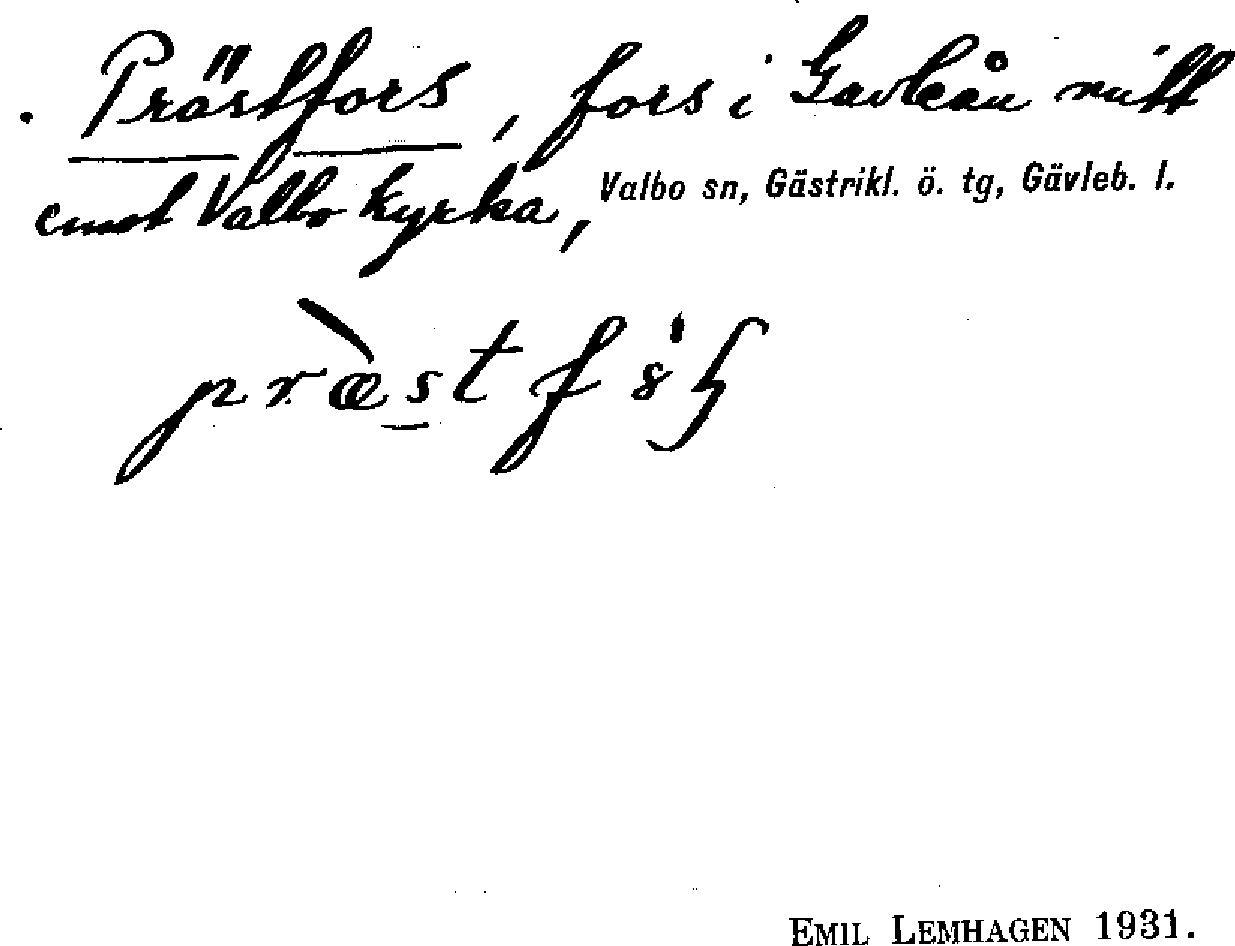 Prästfors, fors i Gavleån mitt
emot Valbo kyrka, Valbo sn, Gästrikl. ö. tg, Gävleb. l.
EMIL LEMHAGEN 1931.